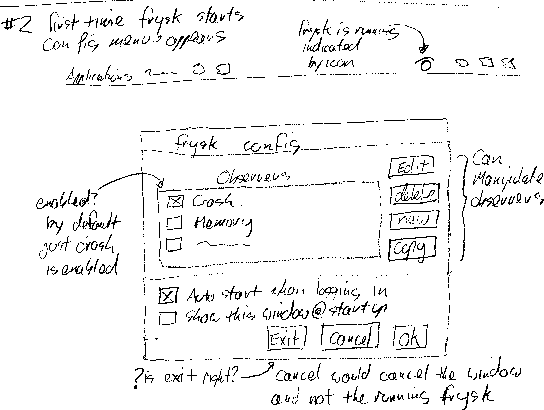 #2 first time frysk starts
config menus appears
frysk is running
indicated
by icon
Applications
frysk config
Observers
Edit
Crash
delete
Memory
new
Copy
Can
Manipulate
observers
enabled?
by default
just crash
is enabled
Auto start when logging in
Show this window@startup
Exit Cancel Ok
?is exit right? cancel would cancel the window
and not the running frysk